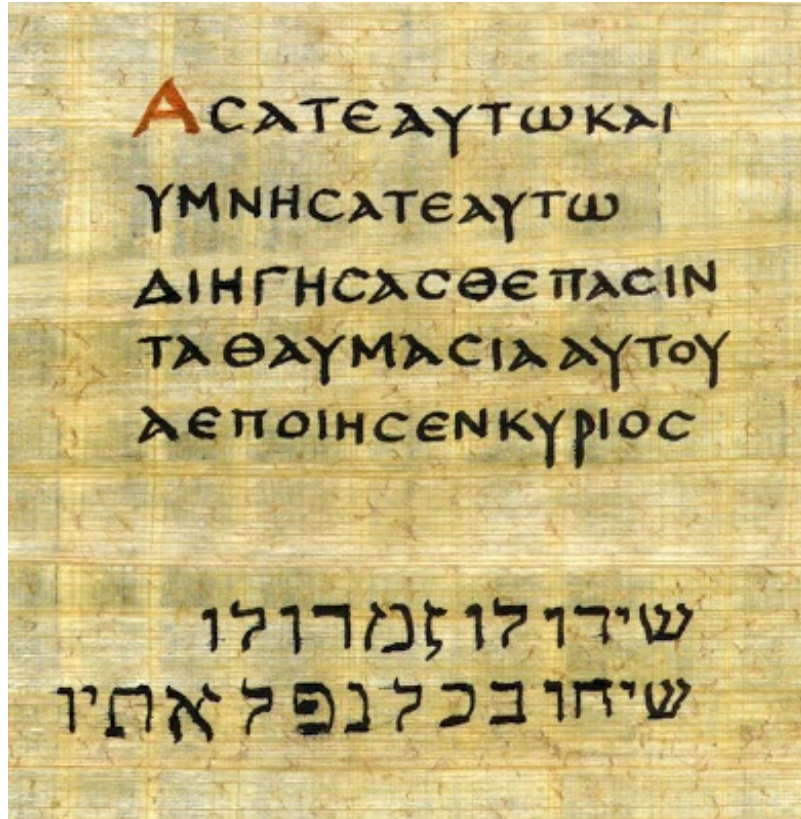 ΑCΑΤΕΑΥΤΩΚΑΙ
ΥΜΝΗCΑΤΕΑΥΤΩ
ΔΙΗΓΗCΑCΘΕΠΑCΙΝ
ΤΑΘΑΥΜΑCΙΑΑΥΤΟΥ
ΑΕΠΟΙΗCΕΝΚΥΡΙΟC
שירו לו זמרו לו
שיחו בכל נפלאתיו